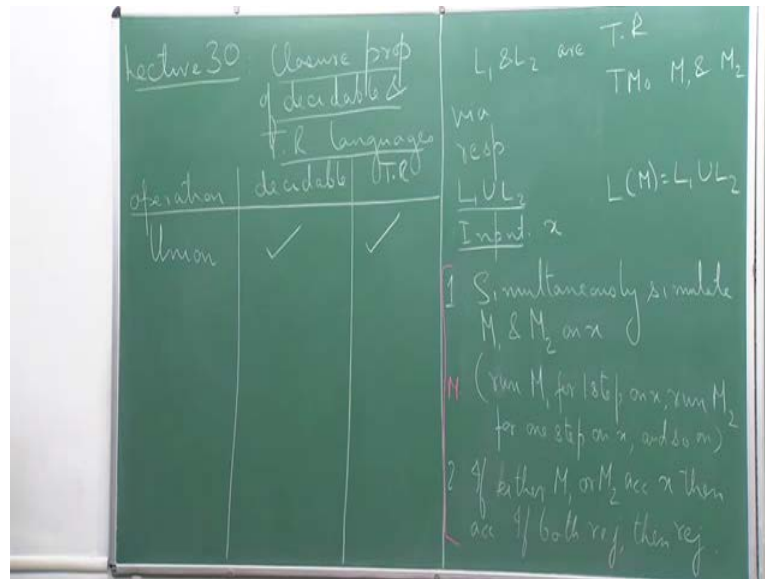 Lecture 30 : Closure prop
of decidable &
T.R languages
operation decidable T.R
Union ✓ ✓
L₁ & L₂ are T.R
via TMs M₁ & M₂
resp
L₁∪L₂ L(M)=L₁∪L₂
Input. x
1 Simultaneously simulate
M₁ & M₂ on x
M (run M₁ for 1 step on x, run M₂
for one step on x, and so on)
2 If either M₁ or M₂ acc x then
acc If both rej, then rej.